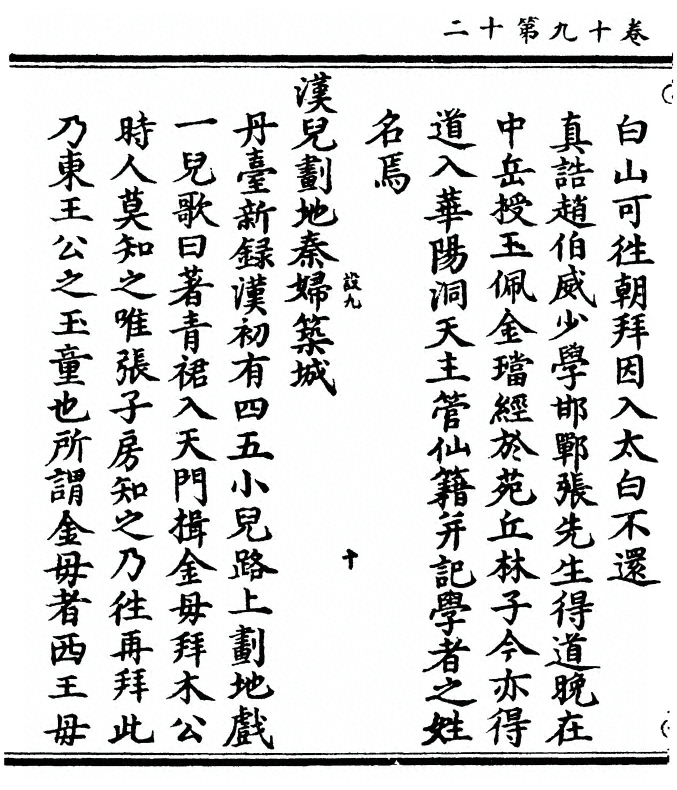 卷十九第十二
白山可往朝拜因入太白不還
真誥趙伯威少學邯鄲張先生得道晚在
中岳授玉佩金璫經於苑丘林子今亦得
道入華陽洞天主管仙籍并記學者之姓
名焉
設九
十
漢兒劃地秦婦築城
丹臺新録漢初有四五小兒路上劃地戲
一兒歌曰著青裙入天門揖金毋拜木公
時人莫知之唯張子房知之乃往再拜此
乃東王公之玉童也所謂金毋者西王毋